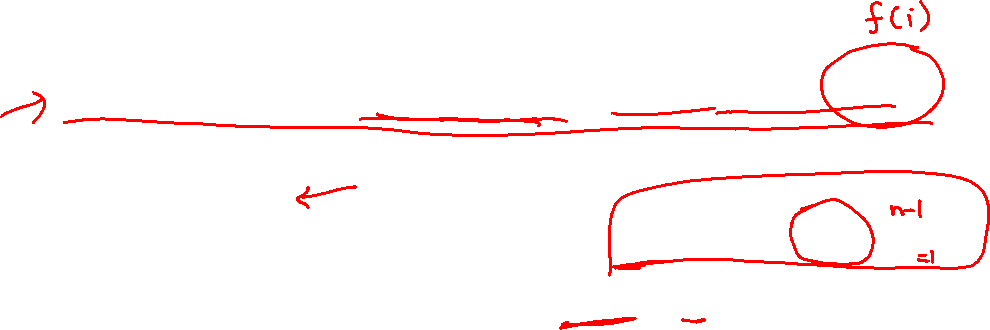 f(i)
n-1
=1